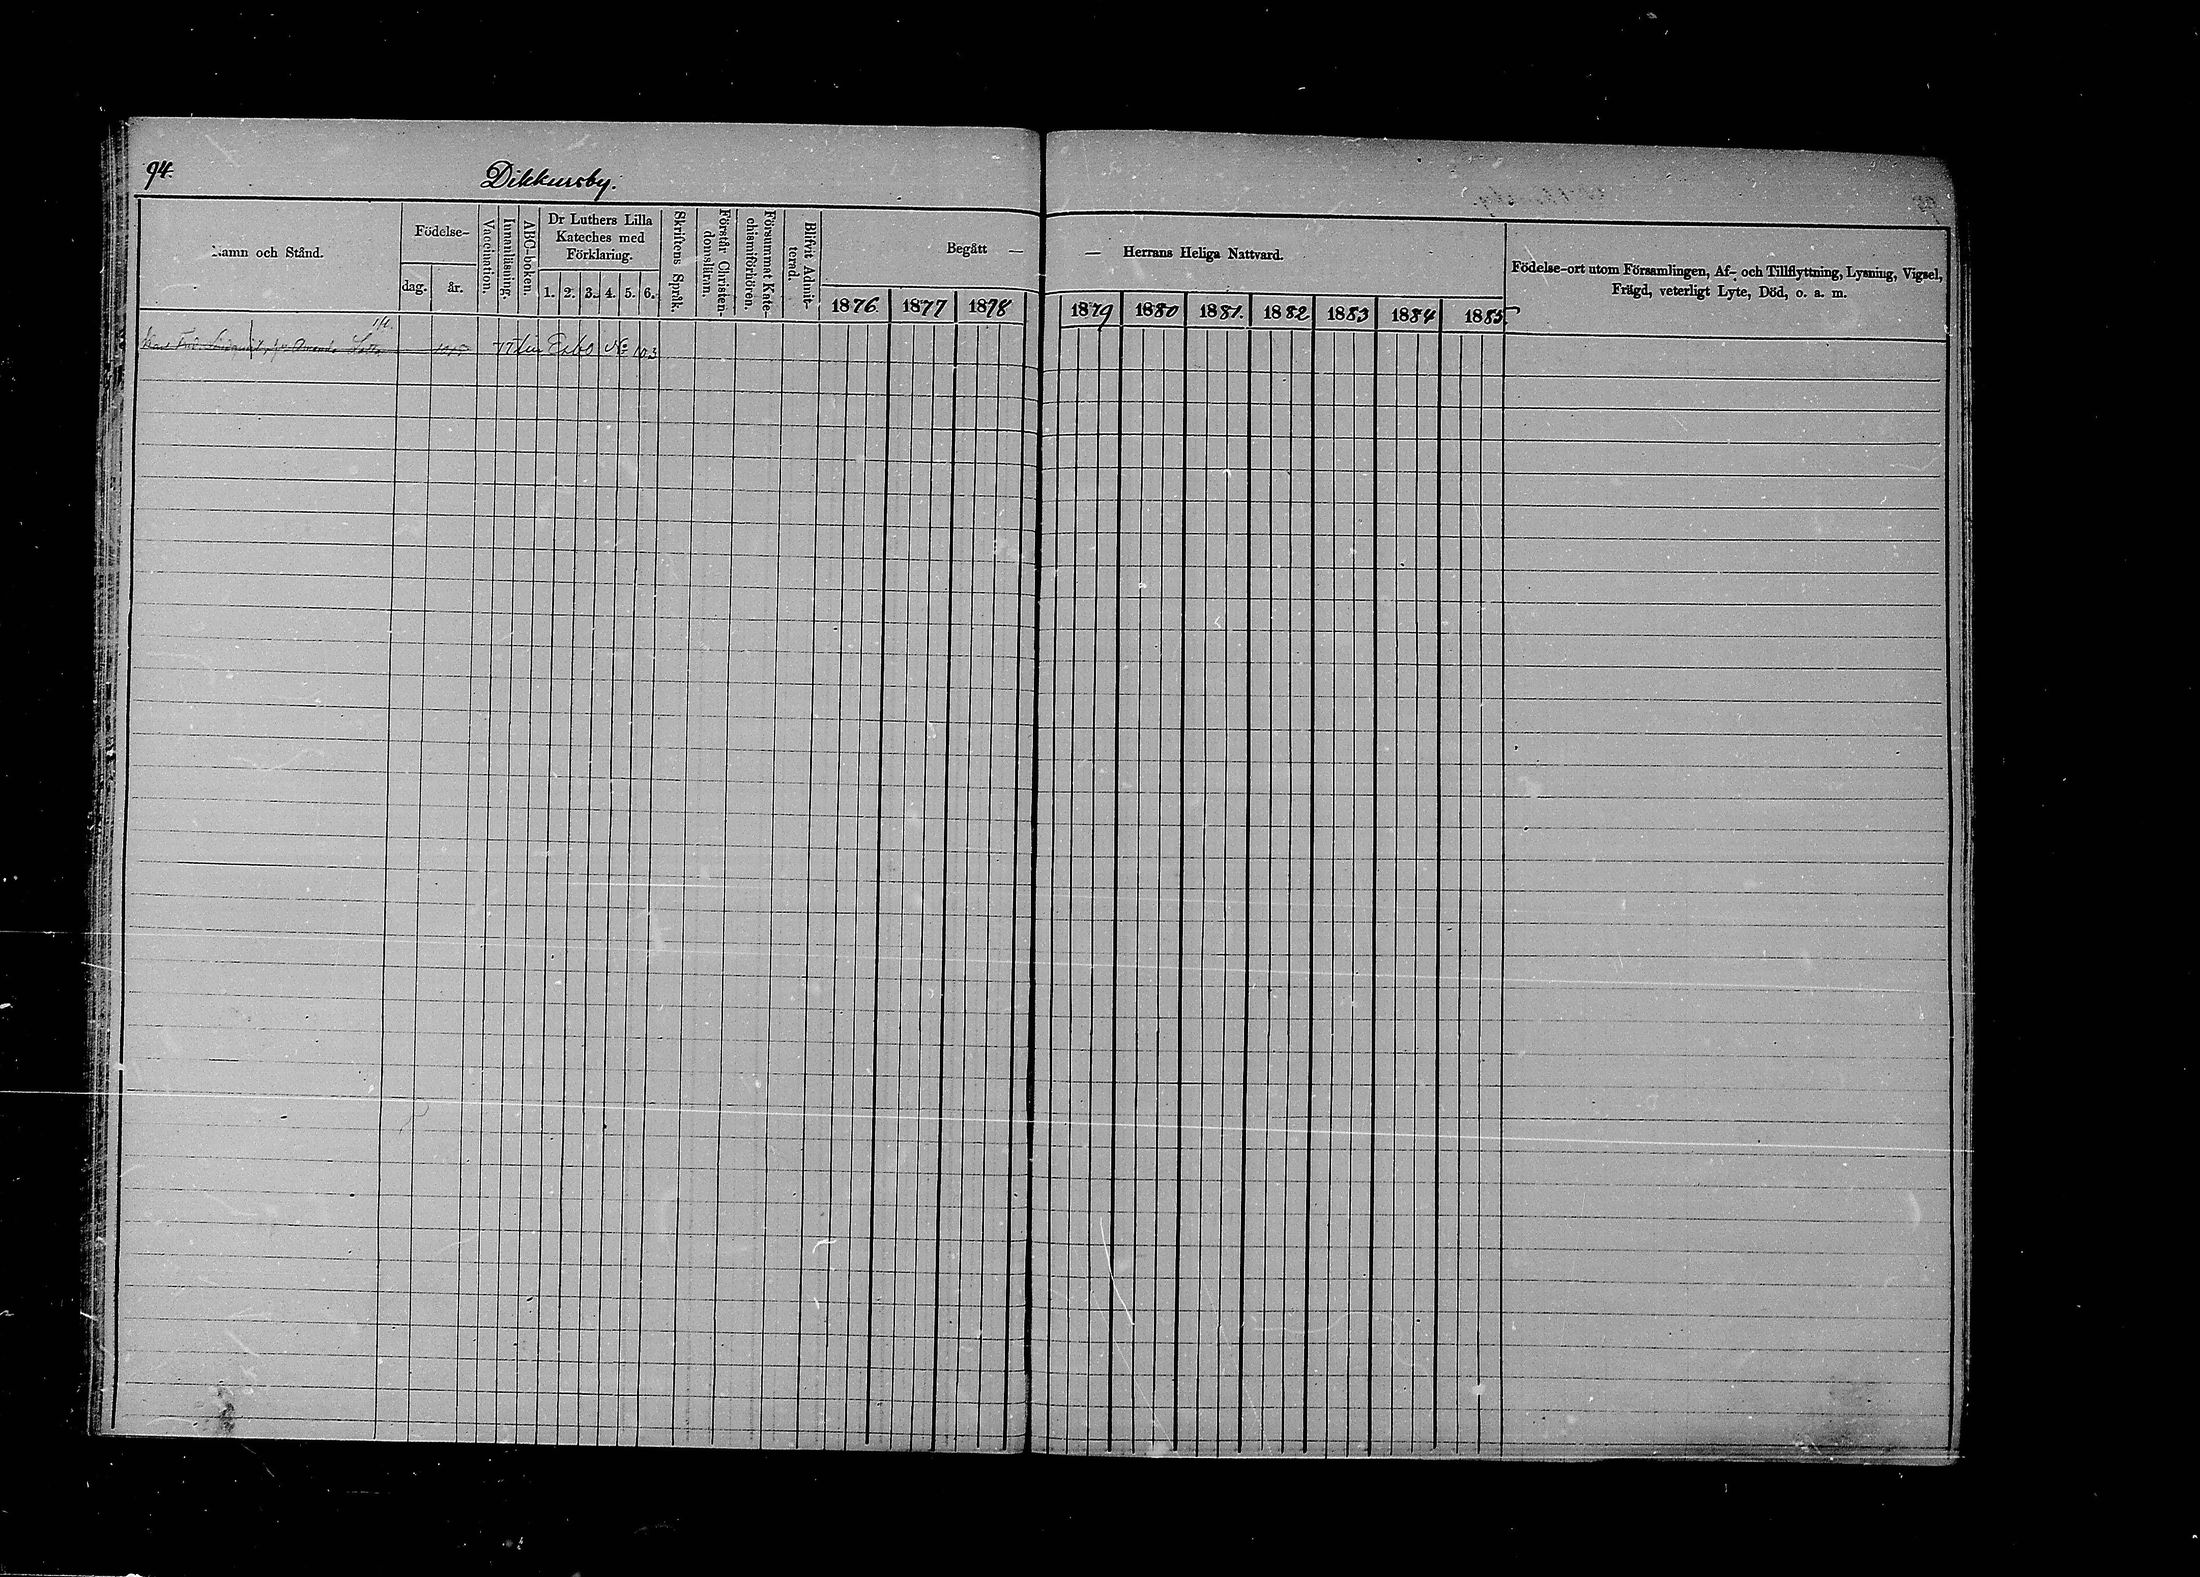 94.
Dikkursby.
Namn och Stånd.
Födelse-
dag.
år.
Vaccination.
Innanläsning.
ABC-boken.
Dr Luthers Lilla
Kateches med
Förklaring.
1. 2. 3. 4. 5. 6.
Skriftens Språk.
Förstår Christen-
domsläran.
Försummat Kate-
chismiförhören.
Blifvit Admit-
terad.
Begått —
1876. 1877 1878
— Herrans Heliga Nattvard.
1879 1880 1881. 1882 1883 1884 1885
Födelse-ort utom Församlingen, Af- och Tillflyttning, Lysning, Vigsel,
Frägd, veterligt Lyte, Död, o. a. m.
Amanda Lotta Esbo No 103